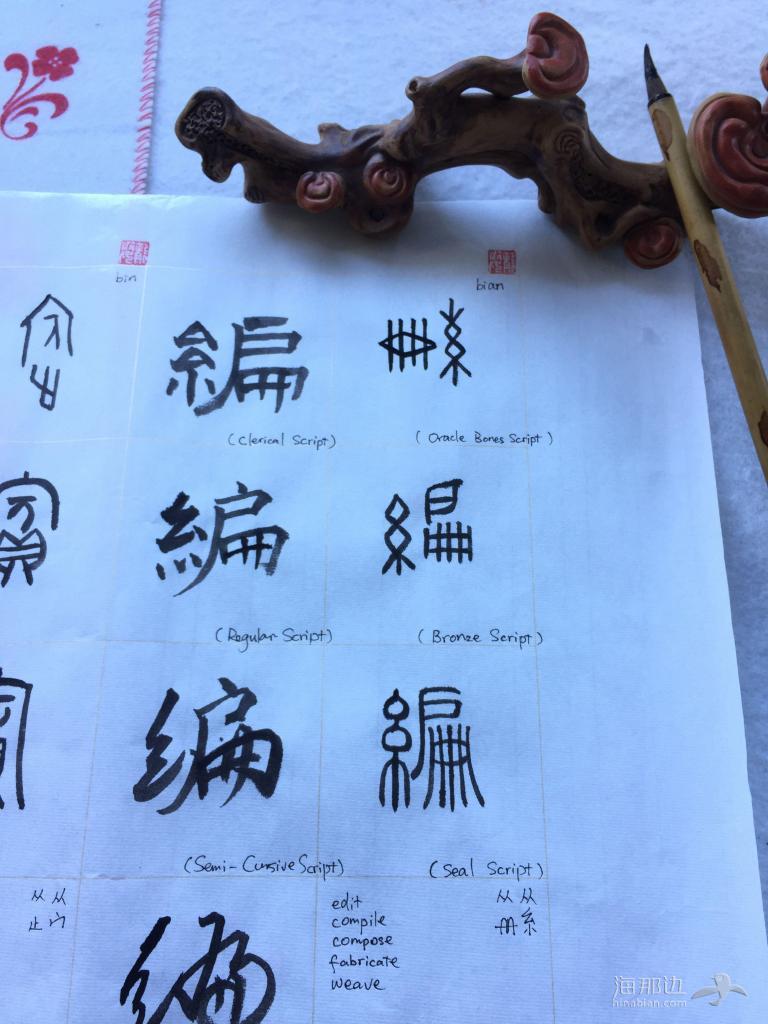 bin
bian
編
(Clerical Script)
(Oracle Bones Script)
編
(Regular Script)
(Bronze Script)
編
編
(Semi-Cursive Script)
(Seal Script)
从从
止宀
edit
compile
compose
fabricate
weave
从从
冊糸
編
海那边
hinabian.com